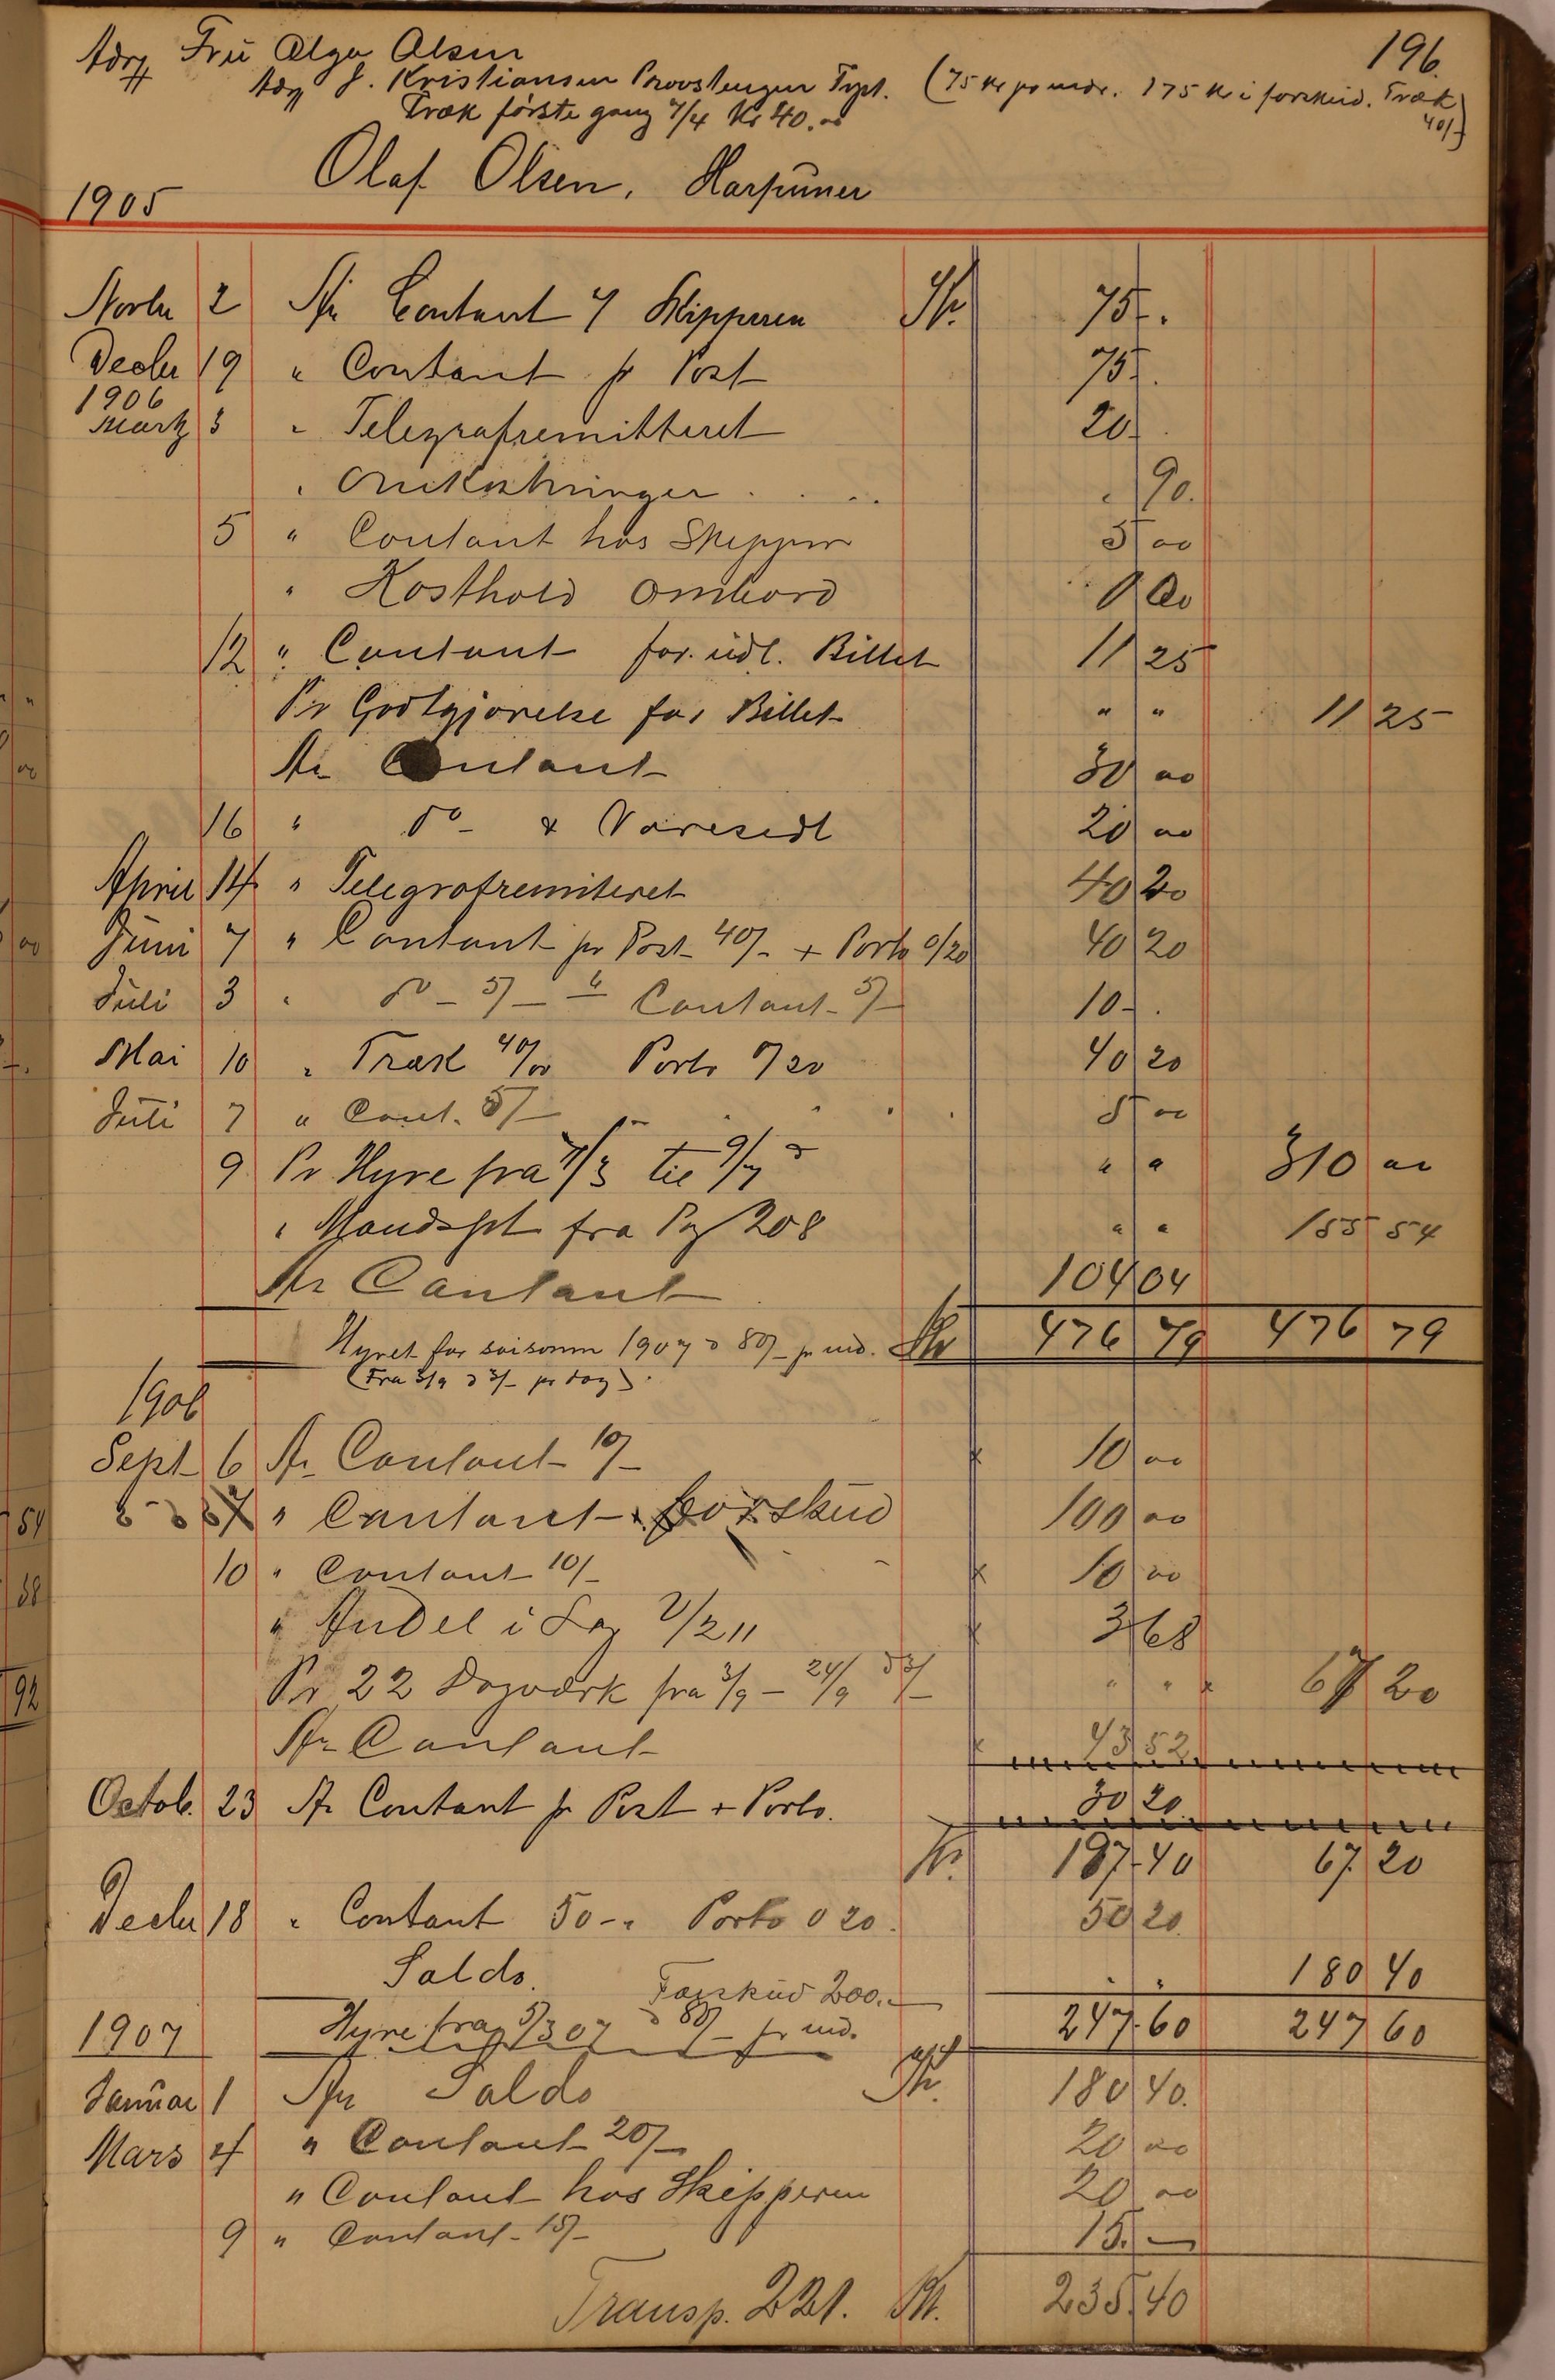 196.
Adr Fru Olga Olsen
Adr J. Kristiansen Provstengen Txpt. (75 Kr pr mdr. 175 Kr i forskud. Træk 40/-)
Træk første gang 7/4 Kr 40.00
Olaf Olsen, Harpuner
1905
Novbr 2 An Contant Skipperen Kr. 75-.
Decbr 19 " Contant pr Post 75-.
1906
Marts 3 " Telegrafremitteret 20-.
" Omkostninger . . . . " 90.
5 " Contant hos Skipper 5 00
" Kosthold ombord
12 " Contant for udl. Billet 11 25
Pr Godtgjørelse for Billet " " 11 25
An Contant 30 00
16 " do & Varesedl 20 00
April 14 " Telegrafremiteret 40 20
Juni 7 " Contant pr Post 40/- + Porto 0/20 40 20
Juli 3 " do - 5/- " Contant 5/- 10-.
Mai 10 " Træk 40/00 Porto 0/20 40 20
Juli 7 " Cont. 5/- 5 00
9 Pr Hyre fra /3 til 9/7 " " 310 00
" Mandskt fra Pag 208 " " 155 54
An Contant 104 04
Kr 476 79 476 79
Hyret for saisonen 1907 à 80/- pr md.
(Fra 3/9 à 3/- pr dag).
1906
Sept 6 An Contant 10/- x 10 00
7 " Contant Forskud 100 00
10 " Contant 10/- x 10 00
" Andel i Lag x 3 68
Pr 22 Dagværk fra 3/9 - 24/9 à 3/- " " x 67 20
An Contant x 43 52
Octob. 23 An Contant pr Post + Porto. 30 20
Kr. 197-40 67. 20
Decbr 18 " Contant 50-" Porto 0 20. 50 20.
Saldo. " " 180 40
Forskud 200.-
247-60 247 60
1907 Hyre fra 5/3 07 à 80/- pr md.
Januar 1 An Saldo Kr. 180 40.
Mars 4 " Contant 20/- 20 00
" Contant hos Skipperen 20 00
9 " Contant 15/- 15.-
Transp. 221. Kr. 235.40